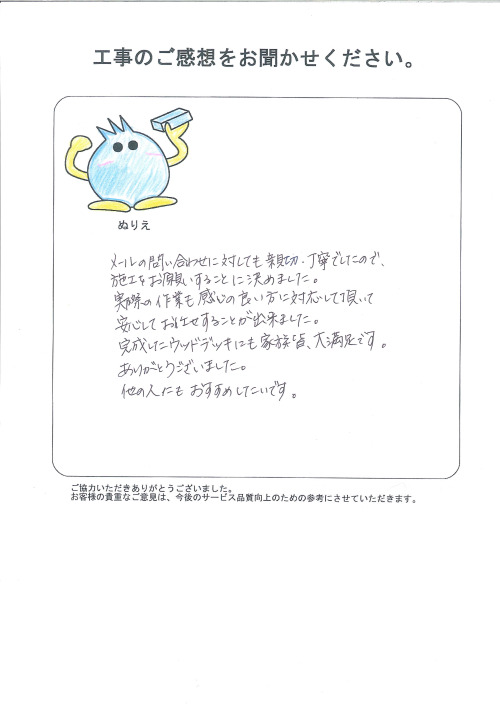 工事のご感想をお聞かせください。
ぬりえ
メールの問い合わせに対しても親切・丁寧でしたので、
施工をお願いすることに決めました。
実際の作業も感じの良い方に対応して頂いて
安心してお任せすることが出来ました。
完成したウッドデッキにも家族皆、大満足です。
ありがとうございました。
他の人にもおすすめしたいです。
ご協力いただきありがとうございました。
お客様の貴重なご意見は、今後のサービス品質向上のための参考にさせていただきます。